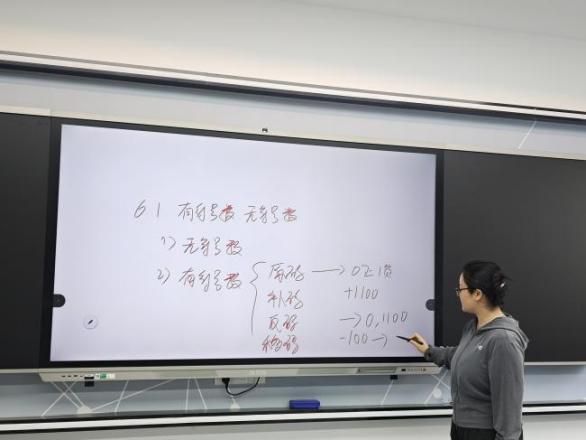 6.1 有符号数 无符号数
1) 无符号数
2) 有符号数 { 原码 → 0正1负
补码 +1100
反码 → 0,1100
移码 -100 →